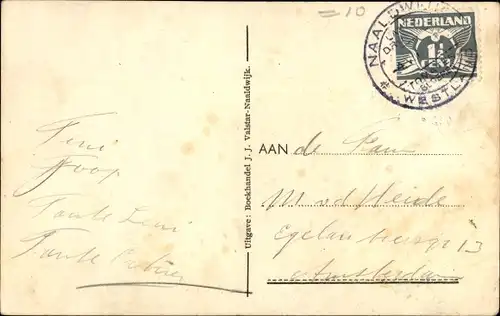 = 10
NAALDWIJK
WESTLAND
NEDERLAND
1½
Joop
Tante Leni
Tante
Uitgave: Boekhandel J. J. Valstar-Naaldwijk.
AAN de Fam
M v d Heide
Egelantiersgr 13
Amsterdam